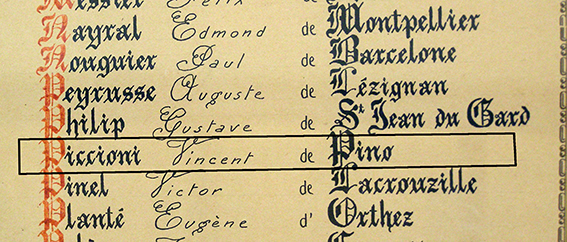 Messier Félix de Montpellier
Nayral Edmond de Montpellier
Nouguier Paul de Barcelone
Peyrusse Auguste de Lézignan
Philip Gustave de St Jean du Gard
Piccioni Vincent de Pino
Pinel Victor de Lacrouzille
Planté Eugène d' Orthez